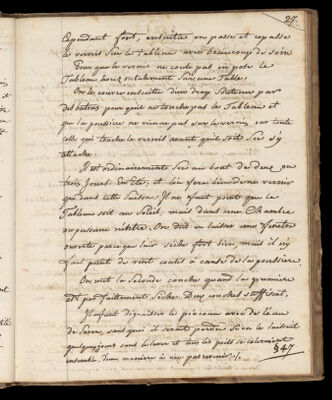 27.
Cependant fort, ensuitte on passe et repasse
le vernis sur le Tableau avec beaucoup de soin
Pour que le vernis ne coule pas on pose le
Tableau horizontalement sur une Table.
On le couvre ensuitte d'un drap soutenu par
des batons pour qu'il ne touche pas le Tableau et
que la poussiere ne vienne pas sur le vernis, car toute
celle qui touche le vernis avant qu'il soit sec s'y
attache.
Il est ordinairement sec au bout de deux ou
trois jours en Eté, et l'on fera bien de ne vernir
que dans cette saison. Il ne faut point que le
Tableau soit au soleil, mais dans une Chambre
ou passione On dit en laisser une fenetre
ouverte parce que l'air seche fort bien, mais il n'y
faut point de vent coulis a cause de la poussiere.
On met la seconde couche quand la premiere
est parfaittement seche. Deux couches suffisent,
Il faut degraisser le pinceau avec de l'eau
de savon, sans quoi il serait perdu si on le laissait
quelques jours sans le laver et tous les poils se colleraient
ensemble d'une maniere à n'en pas revenir./.
§ 47